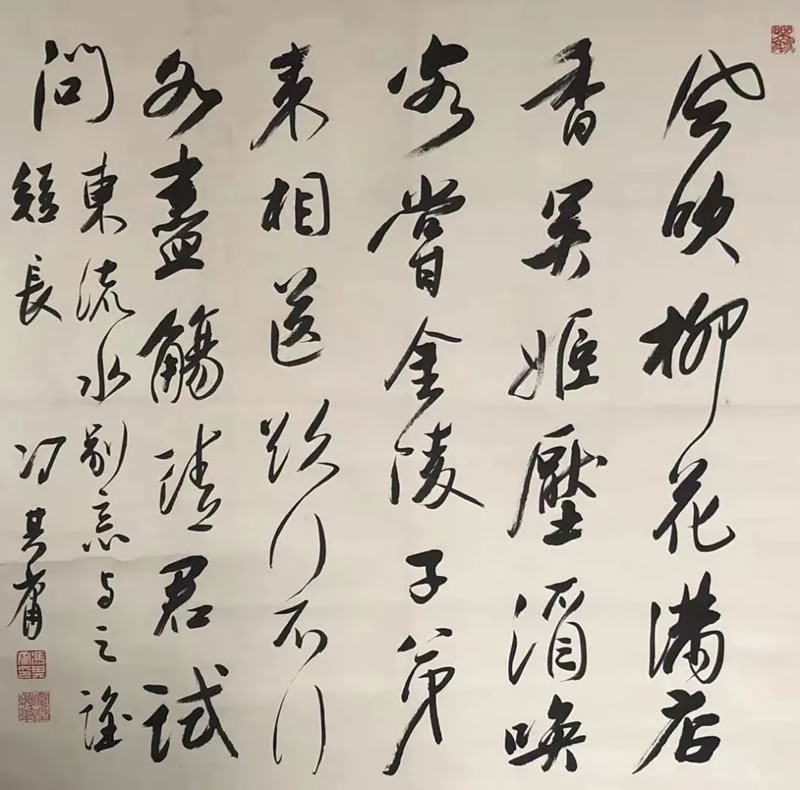 风吹柳花满店
香吴姬壓酒唤
客嘗金陵子弟
来相送欲行不行
各盡觴請君試
問
東流水别意与之誰
短長
冯其庸